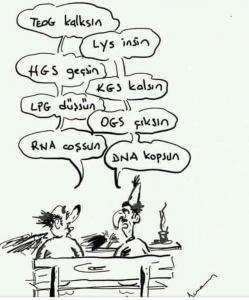 TEOG kalksın
LYS insin
HGS geçsin
KGS kalsın
LPG düşsün
OGS çıksın
RNA coşsun
DNA kopsun